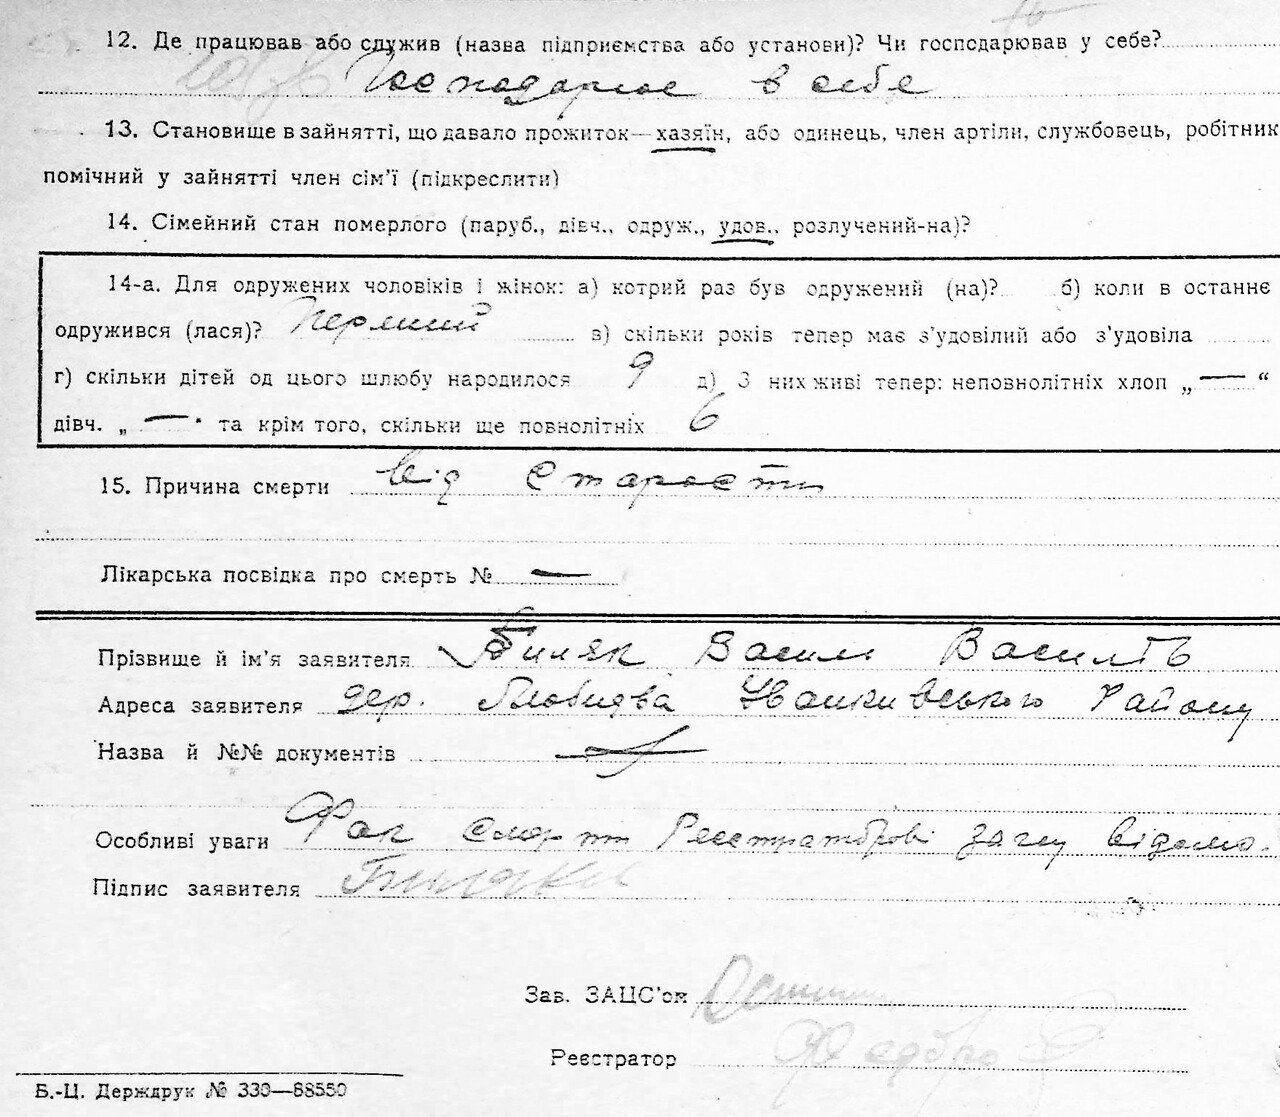 12. Де працював або служив (назва підприємства або установи)? Чи господарював у себе?
Господарює в себе
13. Становище в зайнятті, що давало прожиток—хазяїн, або одинець, член артіли, службовець, робітник
помічний у зайнятті член сім'ї (підкреслити)
14. Сімейний стан померлого (паруб., дівч., одруж., удов., розлучений-на)?
14-а. Для одружених чоловіків і жінок: а) котрий раз був одружений (на)? б) коли в останнє
одружився (лася)? Перший в) скільки років тепер має з'удовілий або з'удовіла
г) скільки дітей од цього шлюбу народилося 9 д) З них живі тепер: неповнолітніх хлоп „—“
дівч. „—" та крім того, скільки ще повнолітніх 6
15. Причина смерти від старости
Лікарська посвідка про смерть № —
Прізвище й ім'я заявителя Биляк Василь
Адреса заявителя дер. Іванківського Району
Назва й №№ документів —
Особливі уваги Фак смерти Реєстраторові загсу відомо.
Підпис заявителя
Зав. ЗАЦС'ом
Реєстратор
Б.-Ц. Держдрук № 330—88550